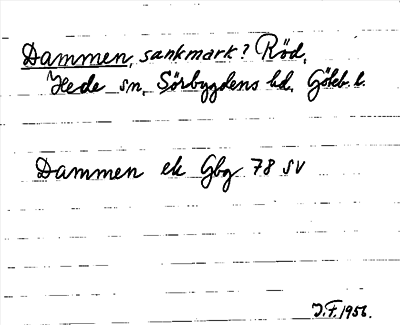 Dammen, sankmark? Röd,
Hede sn, Sörbygdens hd, Göteb. l.
Dammen ek Gbg 78 SV
J.F. 1956.